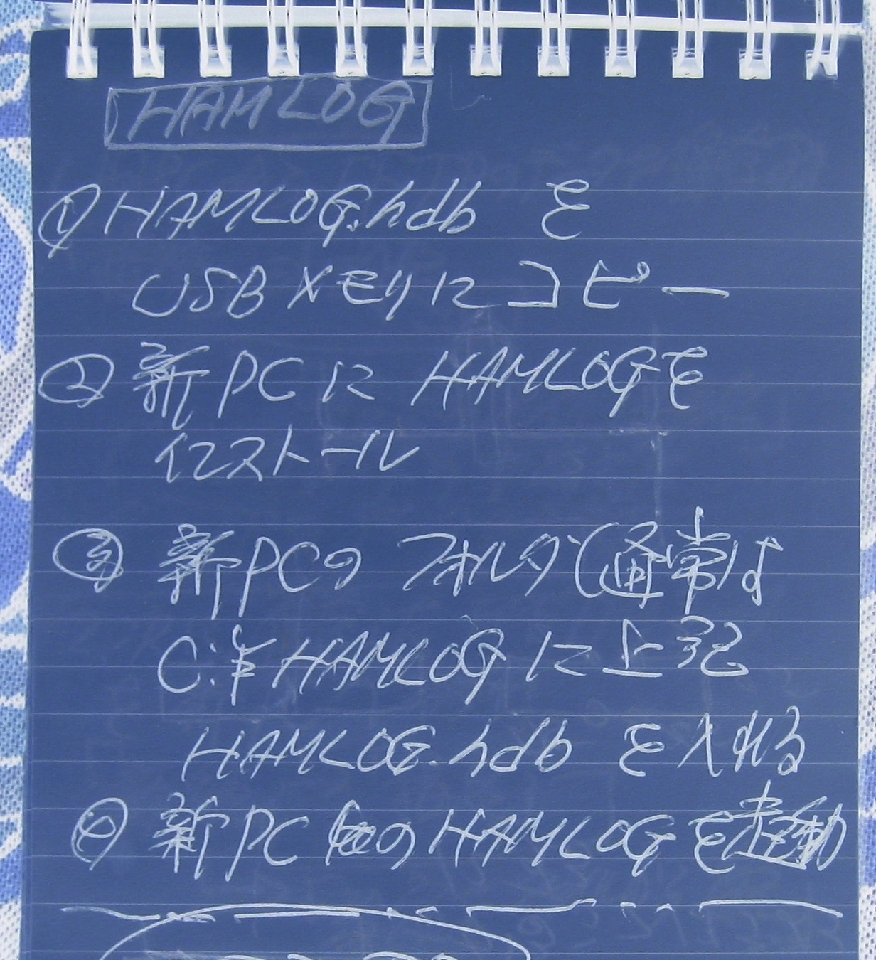 HAMLOG
① HAMLOG.hdb を
USBメモリに コピー
② 新PCに HAMLOGを
インストール
③ 新PCの フォルダ(通常は
C:¥HAMLOG に上記
HAMLOG.hdb を入れる
④ 新PC のHAMLOGを起動